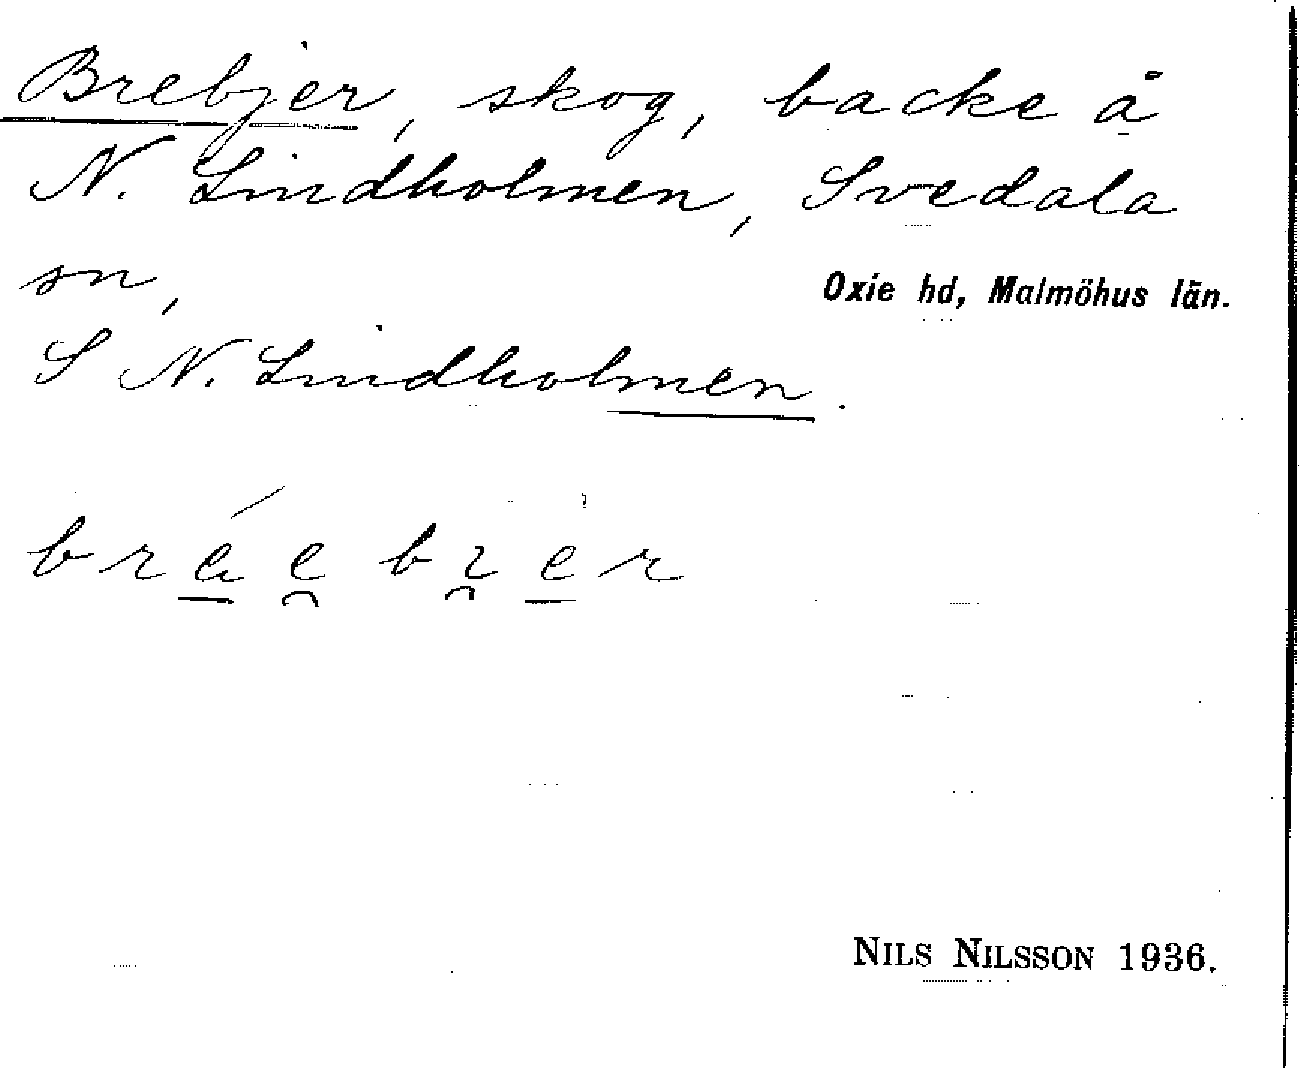 Brebjer, skog, backe å
N. Lindholmen, Svedala
sn,
Oxie hd, Malmöhus län.
S N. Lindholmen.
NILS NILSSON 1936.